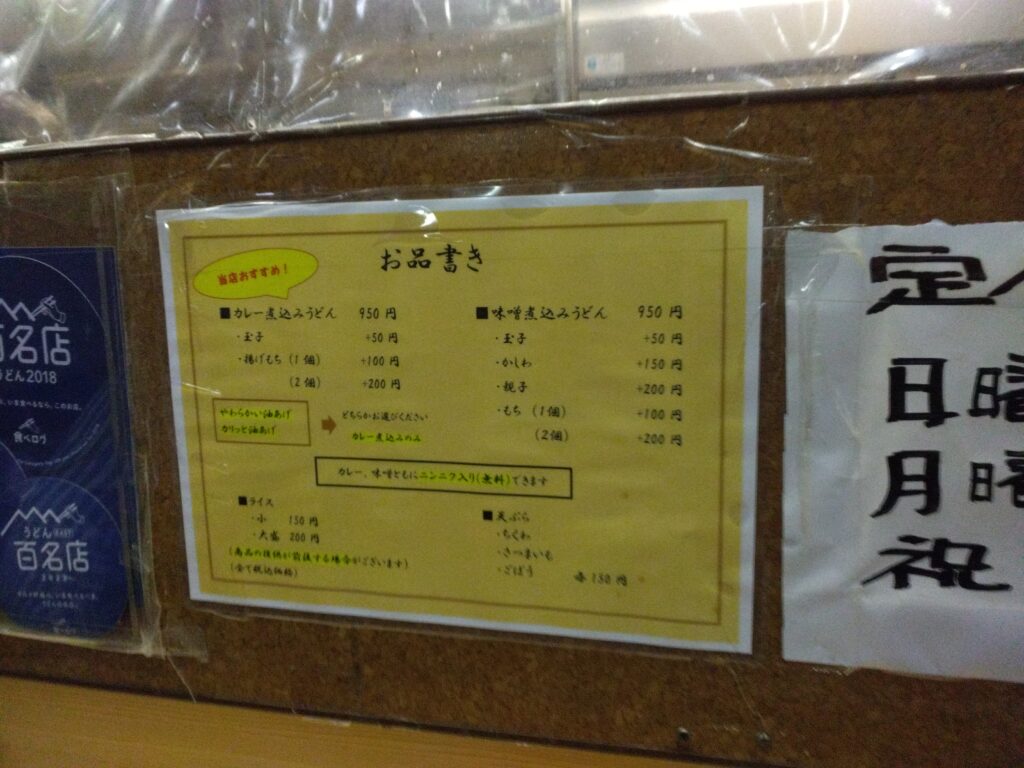 百名店
うどん2018
食べログ
うどん
百名店
食べログ
お品書き
当店おすすめ!
■カレー煮込みうどん 950円
・玉子 +50円
・揚げもち (1個) +100円
(2個) +200円
やわらかい油あげ
カリッと油あげ
どちらかお選びください
カレー煮込みのみ
■味噌煮込みうどん 950円
・玉子 +50円
・かしわ +150円
・親子 +200円
・もち (1個) +100円
(2個) +200円
カレー、味噌ともにニンニク入り(無料)できます
■ライス
・小 150円
・大盛 200円
(商品の提供が前後する場合がございます)
(全て税込価格)
■天ぷら
・ちくわ
・さつまいも
・ごぼう 各150円
定
日曜
月曜
祝